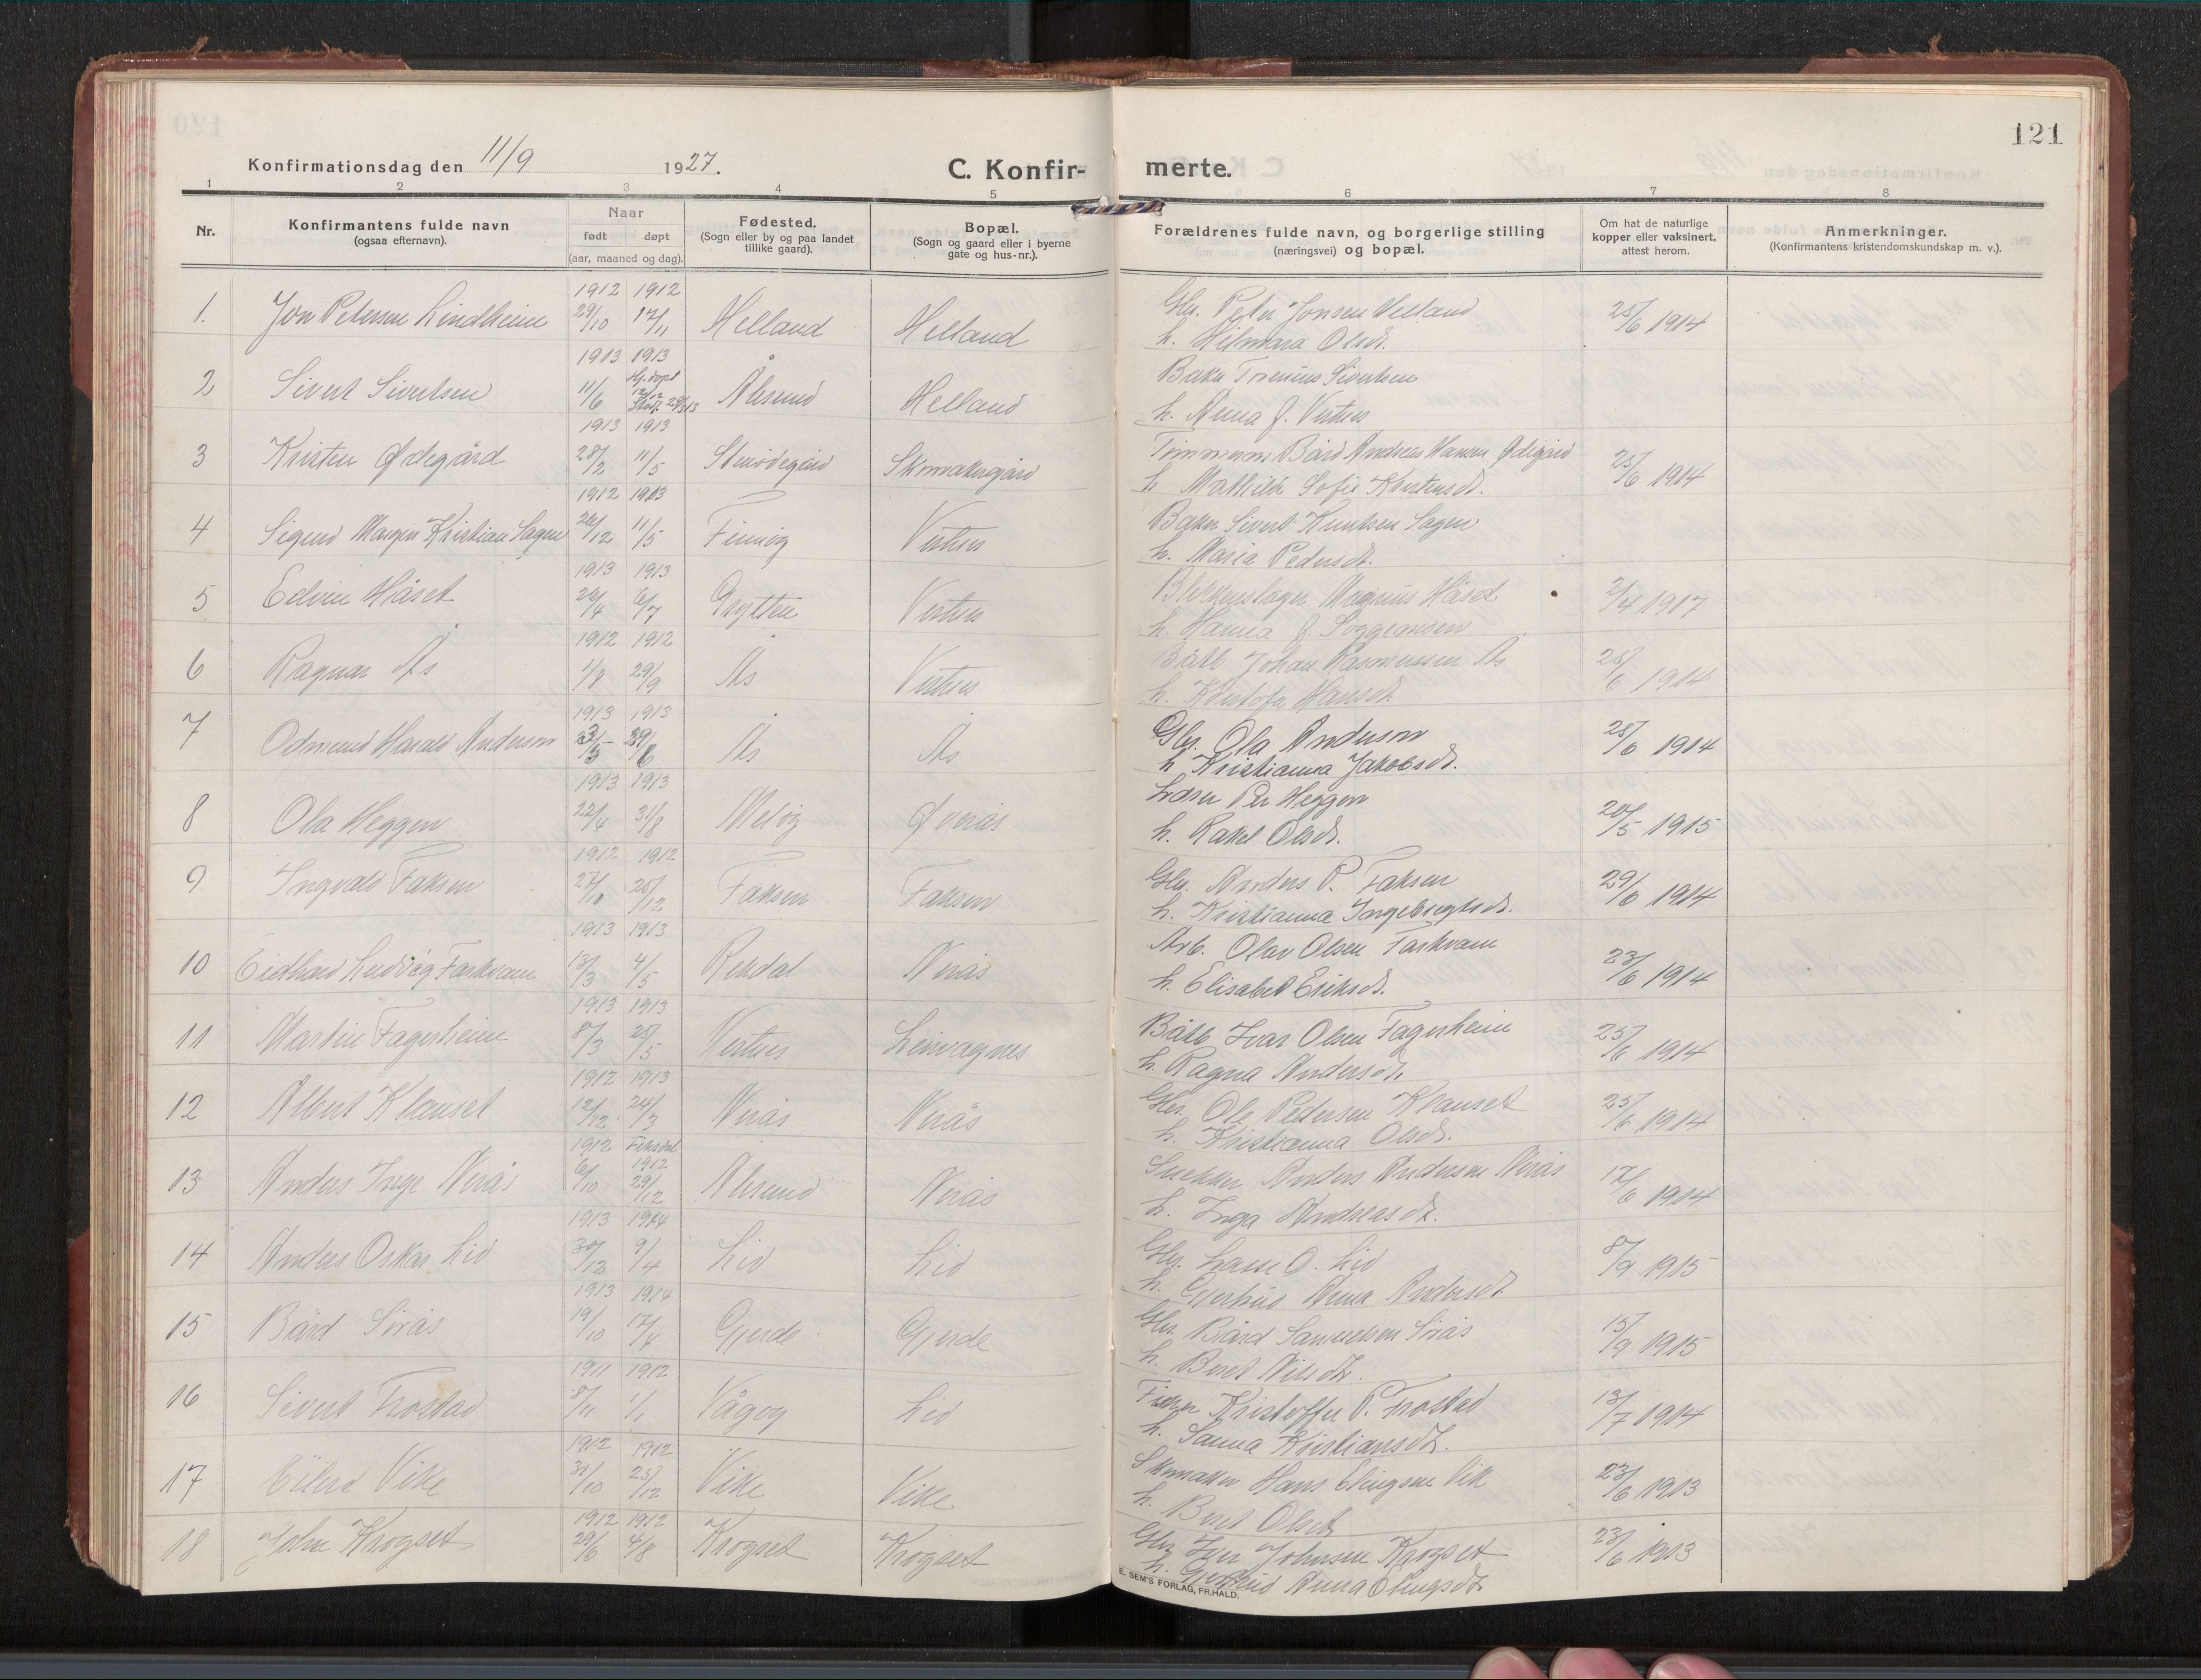 121
Konfirmationsdag den 11/9 1927.
C. Konfir-
merte.
1 2 3 4 5 6 7 8
Nr.
Konfirmantens fulde navn
(ogsaa efternavn).
Naar
født døpt
(aar, maaned og dag).
Fødested.
(Sogn eller by og paa landet
tillike gaard).
Bopæl.
(Sogn og gaard eller i byerne
gate og hus-nr.).
Forældrenes fulde navn, og borgerlige stilling
(næringsvei) og bopæl.
Om hat de naturlige
kopper eller vaksinert,
attest herom.
Anmerkninger.
(Konfirmantens kristendomskundskap m. v.).
1912 1912
1. Jon Petersen Lindheim 29/10 17/11 Helland Helland Gbr. Peter Jonsen Helland 25/6 1914
h. Hilmara Olsdt.
1913 1913
2 Sivert Sivertsen 11/6 Ålesund Helland Baker Sivertsen
h. Anna J. Vestnes
1913 1913
3 Kristen Ødegård 28/2 11/5 Skomakergård Tømmerm. Bård Andreas Hansen Ødegård 25/6 1914
h Mathilde Sofie Kristensdt.
1912 1913
4 Sigurd Kristian Sagen 26/12 11/5 Vestnes Baker Sivert Knutsen Sagen
h. Maria Pedersdt.
1913 1913
5 Edvin Håset 26/4 6/7 Grytten Vestnes Blikkenslager Magnus Håset 2/4 1917
h. Hanna J.
1912 1912
6 Ragnar Ås 1/8 29/9 Ås Vestnes Båtb. Johan Rasmussen Ås 25/6 1914
h. Hansdt.
1913 1913
7 Odmund Harald Anderson 29/6 Ås Ås Gbr. Ola Anderson 25/6 1914
h Kristianna Jakobsdt.
1913 1913
8 Ola Heggen 22/4 31/8 Øverås Lærer Per Heggen 20/5 1915
h. Rakel Olsdt.
1912 1912
9 Ingvald Faksen 27/10 25/12 Faksen Faksen Gbr. Anders P. Faksen 29/6 1914
h. Kristianna Ingebrigtsdt.
1913 1913
10 Eidhard Ludvig Farkvam 13/3 4/5 Rekdal Nerås Arb. Olav Olsen Farkvam 23/6 1914
h. Elisabet Eriksdt.
1913 1913
11 Martin Fagerheim 8/3 25/5 Vestnes Leirvagnes Båtb. Ivar Olsen Fagerheim 25/6 1914
h. Ragna Andersdt.
1912 1913
12 Albert Klauset 12/12 24/3 Nerås Nerås Gbr. Ole Pedersen Klauset 25/6 1914
h. Kristianna Olsdt.
1912 Fiksdal 1912
13 Anders Inge Nerås 6/10 29/12 Ålesund Nerås Snekker Anders Andersen Nerås 17/6 1914
h. Inga Andreasdt.
1913 1914
14 Anders Oskar Lid 30/12 9/4 Lid Lid Gbr. Lasse O. Lid 8/9 1915
h. Gjertrud Anna Andersdt
1913 1914
15 Bård Sirås 19/10 17/4 Gjerde Gjerde Gbr. Bård Samuelsen Sirås 15/9 1915
h. Beret Nilsdt.
1911 1912
16 Sivert Frostad 8/11 1/1 Vågøy Lid Fisker Kristoffer P. Frostad 13/7 1914
h. Sanna Kristiansdt.
1912 1912
17 Eilert Vike 31/10 25/12 Vike Vike Skomaker Hans Elingsen Vik 23/6 1913
h. Beret Olsdt
1912 1912
18 John Krogset 29/6 4/8 Krogset Krogset Gbr Iver Johnsen Krogset 23/6 1913
h. Gjertrud Anna Elingsdt.
E. SEM'S FORLAG, FR.HALD.